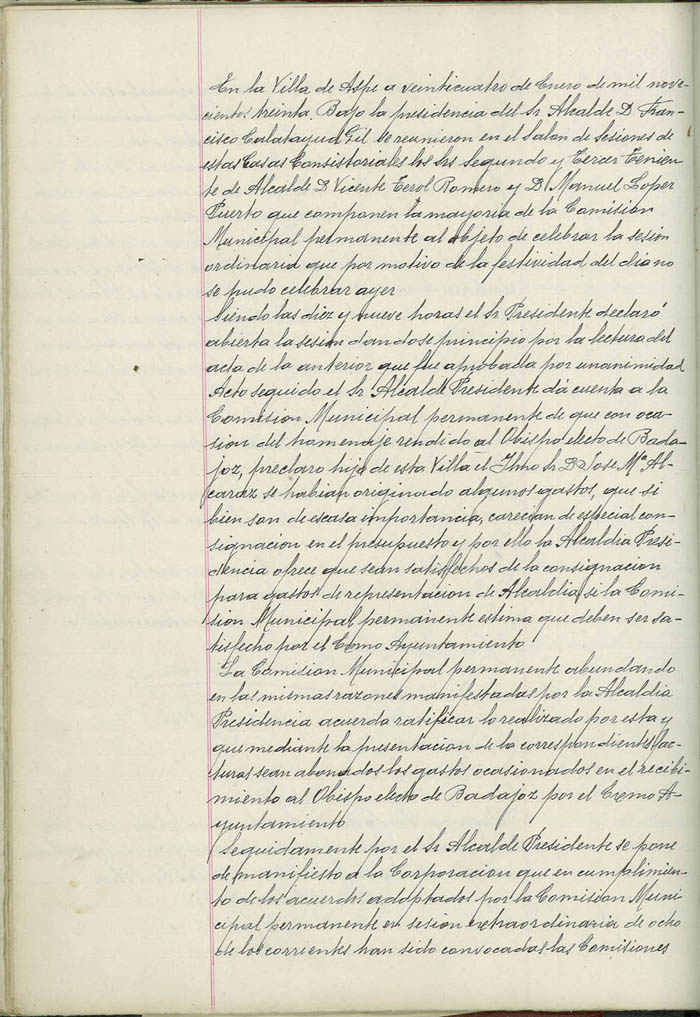 En la Villa de Aspe a veinticuatro de Enero de mil nove-
cientos treinta. Bajo la presidencia del Sr Alcalde D Fran-
cisco Calatayud Gil se reunieron en el Salon de Sesiones de
estas Casas Consistoriales los Srs Segundo y Tercer Tenien-
te de Alcalde D Vicente Terol Romero y D Manuel Lopez
Puerto que componen la mayoria de la Comision
Municipal permanente al objeto de celebrar la sesion
ordinaria que por motivo de la festividad del dia no
se pudo celebrar ayer
Siendo las diez y nueve horas el Sr Presidente declaró
abierta la sesion dandose principio por la lectura del
acta de la anterior que fue aprobada por unanimidad
Acto seguido el Sr Alcalde Presidente dá cuenta a la
Comision Municipal permanente de que con oca-
sion del homenaje rendido al Obispo electo de Bada-
joz, preclaro hijo de esta Villa el Ilmo Sr D Jose Mª Al-
caraz se habian originado algunos gastos, que si
bien son de escasa importancia, carecian de especial con-
signacion en el presupuesto y por ello la Alcaldia Presi-
dencia ofrece que sean satisfechos de la consignacion
para gastos de representacion de Alcaldia, si la Comi-
sion Municipal permanente estima que deben ser sa-
tisfecho por el Excmo Ayuntamiento
La Comision Municipal permanente abundando
en las mismas razones manifestadas por la Alcaldia
Presidencia acuerda ratificar lo realizado por esta y
que mediante la presentacion de la correspondientes fac-
turas sean abonados los gastos ocasionados en el recibi-
miento al Obispo electo de Badajoz por el Excmo A-
yuntamiento
Seguidamente por el Sr Alcalde Presidente se pone
de manifiesto a la Corporacion que en cumplimien-
to de los acuerdos adoptados por la Comision Muni
cipal permanente en sesion extraordinaria de ocho
de los corrientes han sido convocadas las Comisiones